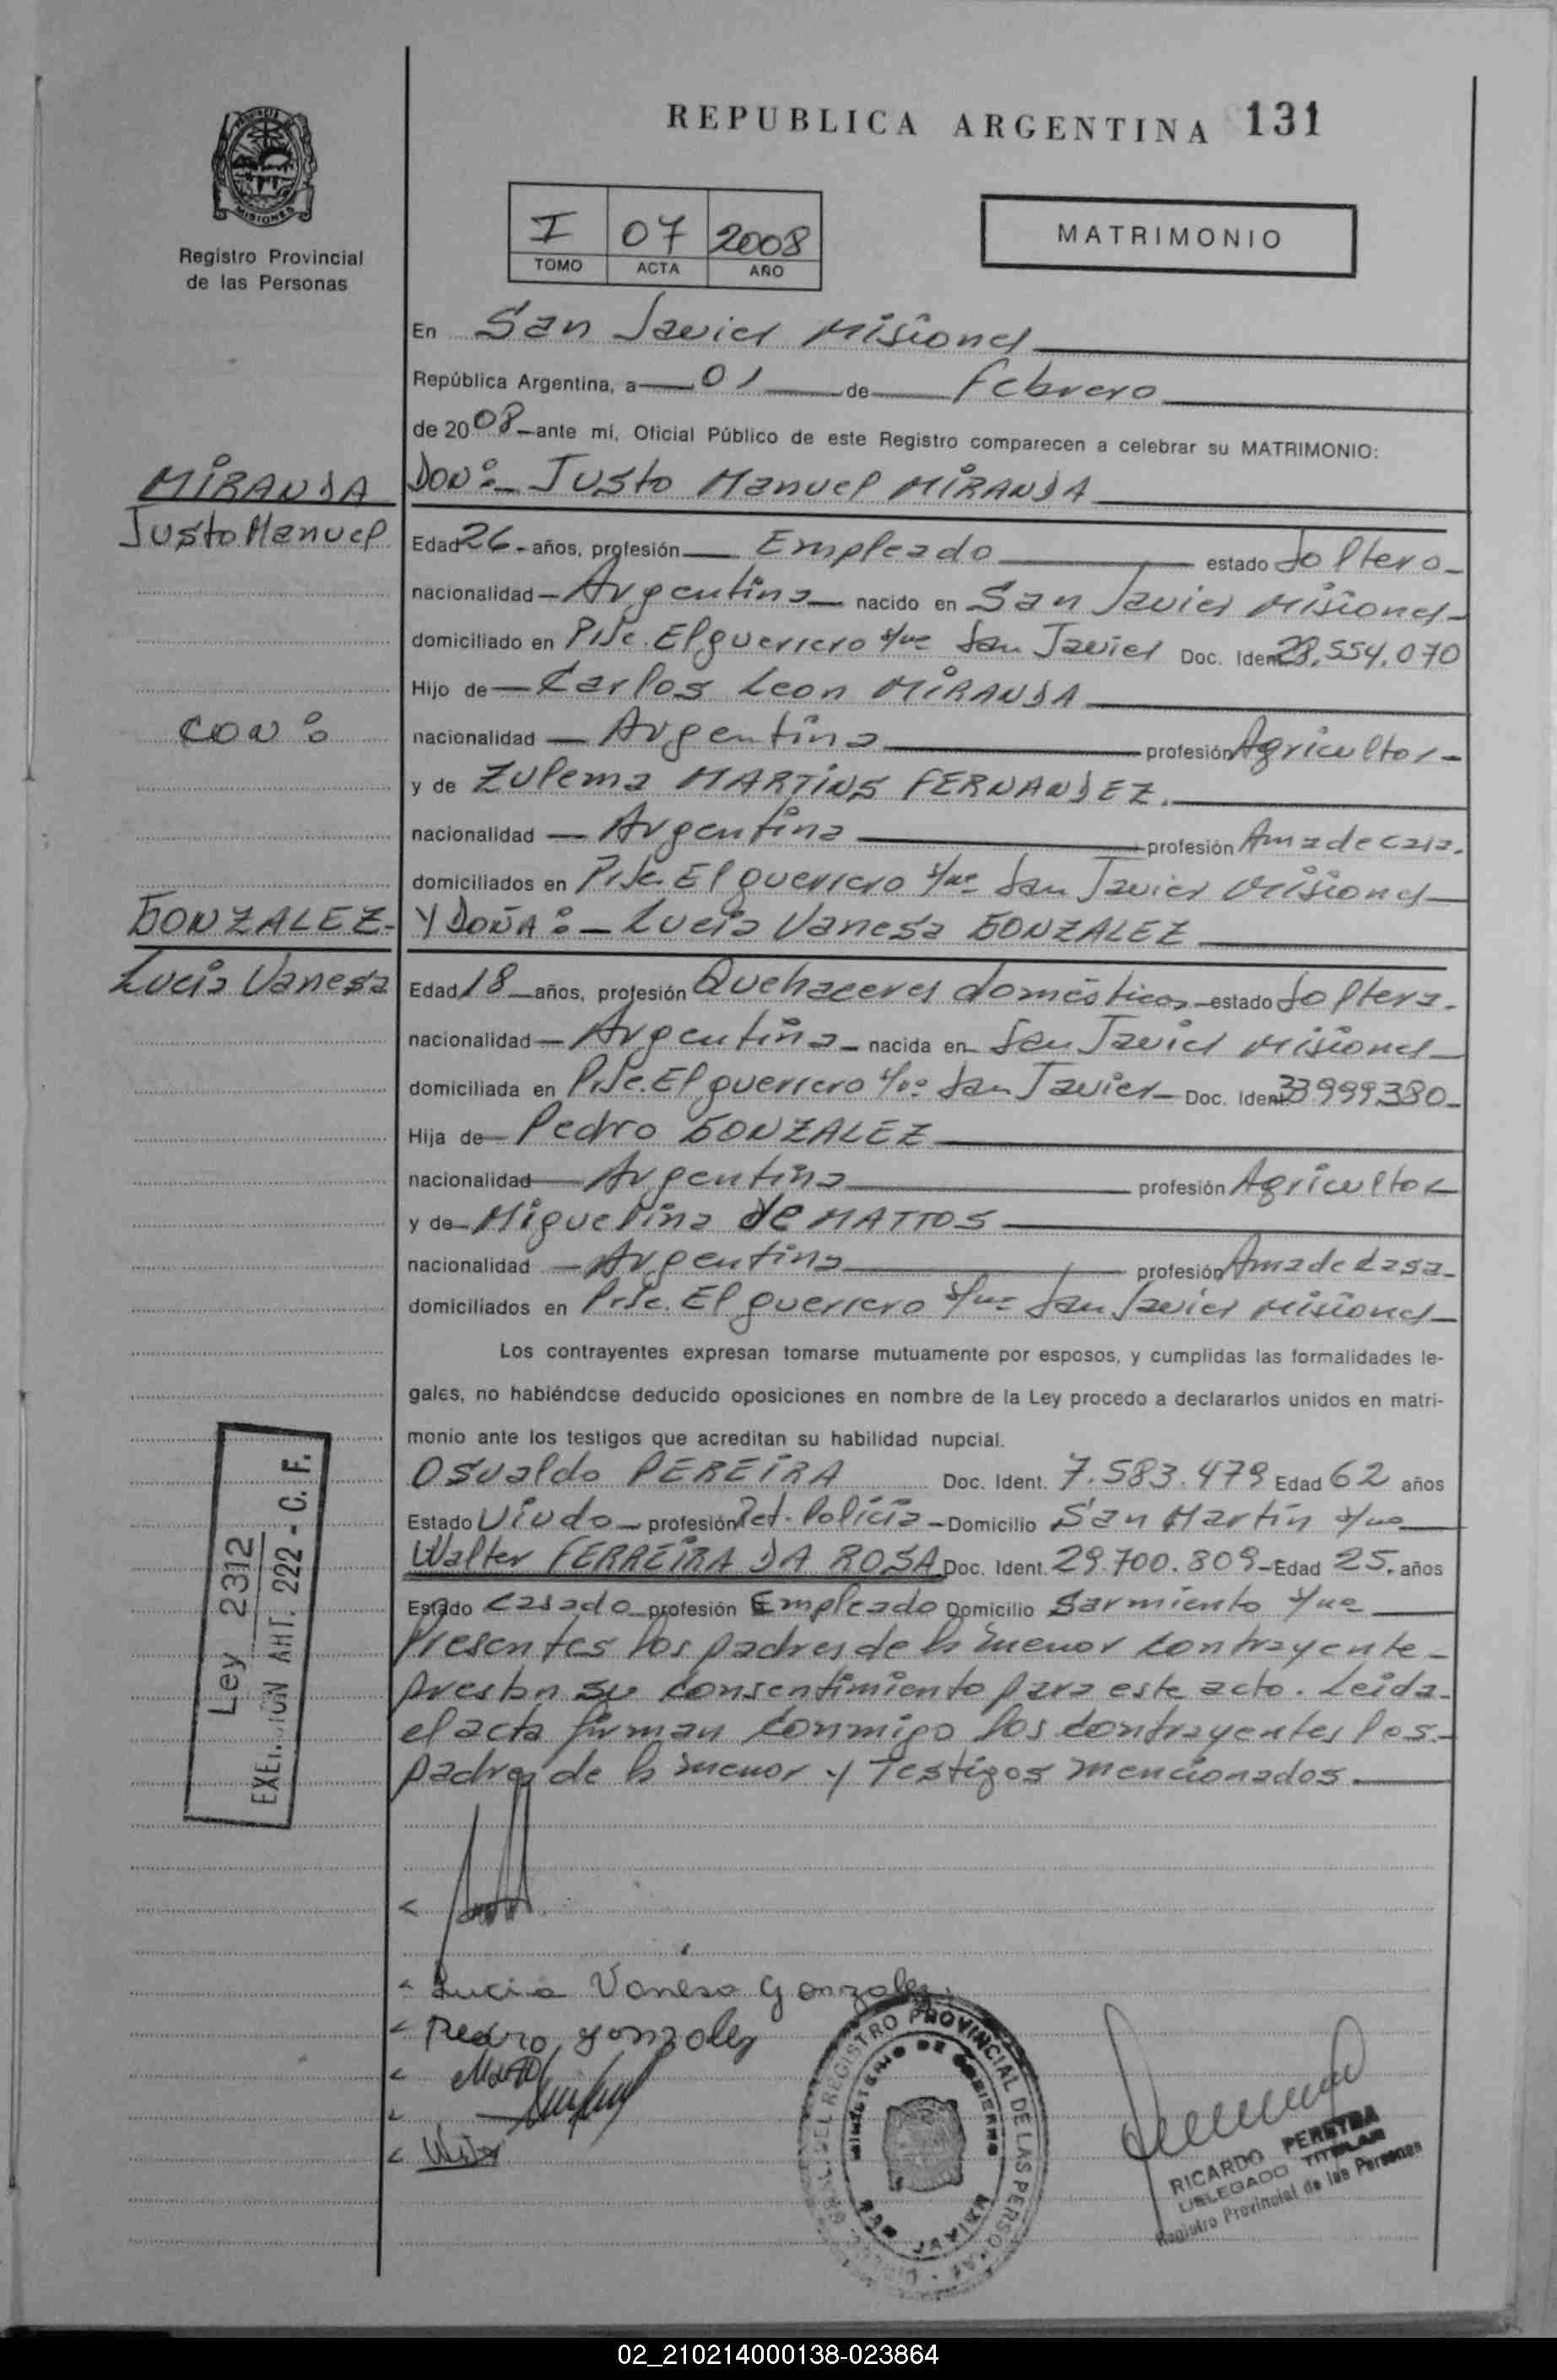 REPUBLICA ARGENTINA 131
MISIONES
Registro Provincial
de las Personas
I 07 2008
TOMO ACTA AÑO
MATRIMONIO
En San Javier Misiones
República Argentina, a 01 de Febrero
de 2008 ante mí, Oficial Público de este Registro comparecen a celebrar su MATRIMONIO:
MIRANDA
Justo Manuel
CON:
GONZALEZ
Lucia Vanesa
DON: Justo Manuel MIRANDA
Edad 26 años, profesión Empleado estado Soltero
nacionalidad Argentina nacido en San Javier Misiones
domiciliado en Pje. El guerrero s/nº San Javier Doc. Ident. 28.554.070
Hijo de Carlos Leon MIRANDA
nacionalidad Argentina profesión Agricultor
y de Zulema MARTINS FERNANDEZ.
nacionalidad Argentina profesión Ama de casa.
domiciliados en Pje. El guerrero s/nº San Javier Misiones
Y DOÑA: Lucia Vanesa GONZALEZ
Edad 18 años, profesión Quehaceres domésticos estado Soltera.
nacionalidad Argentina nacida en San Javier Misiones
domiciliada en Pje. El guerrero s/nº San Javier Doc. Ident. 33999380
Hija de Pedro GONZALEZ
nacionalidad Argentina profesión Agricultor
y de Miguelina de MATTOS
nacionalidad Argentina profesión Ama de Casa
domiciliados en Pje. El guerrero s/nº San Javier Misiones
Los contrayentes expresan tomarse mutuamente por esposos, y cumplidas las formalidades le-
gales, no habiéndose deducido oposiciones en nombre de la Ley procedo a declararlos unidos en matri-
monio ante los testigos que acreditan su habilidad nupcial.
Osvaldo PEREIRA Doc. Ident. 7.583.479 Edad 62 años
Estado Viudo profesión Ret. Policía Domicilio San Martín s/nº
Walter FERREIRA DA ROSA Doc. Ident. 29.700.809 Edad 25. años
Estado Casado profesión Empleado Domicilio Sarmiento s/nº
Presentes los padres de la menor contrayente
prestan su consentimiento para este acto. Leida
el acta firman conmigo los contrayentes los
padres de la menor y Testigos mencionados.
Ley 2312
ART. 222 - C. F.
Lucia Vanesa Gonzalez
Pedro Gonzalez
REGISTRO PROVINCIAL DE LAS PERSONAS
MINISTERIO DE GOBIERNO
SAN JAVIER
RICARDO PEREYRA
DELEGADO TITULAR
Registro Provincial de las Personas
02_210214000138-023864